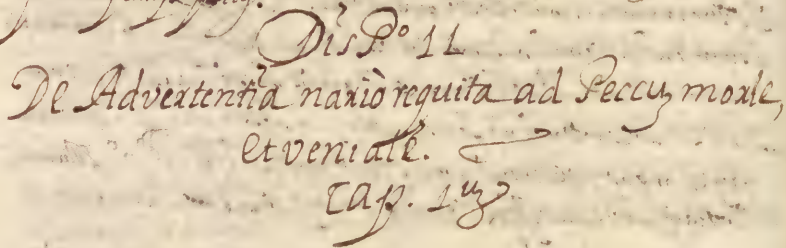 DisPº 11
De Advertentia nariò requita ad Peccuʒ morle,
et veniale.
Cap. 1uʒ